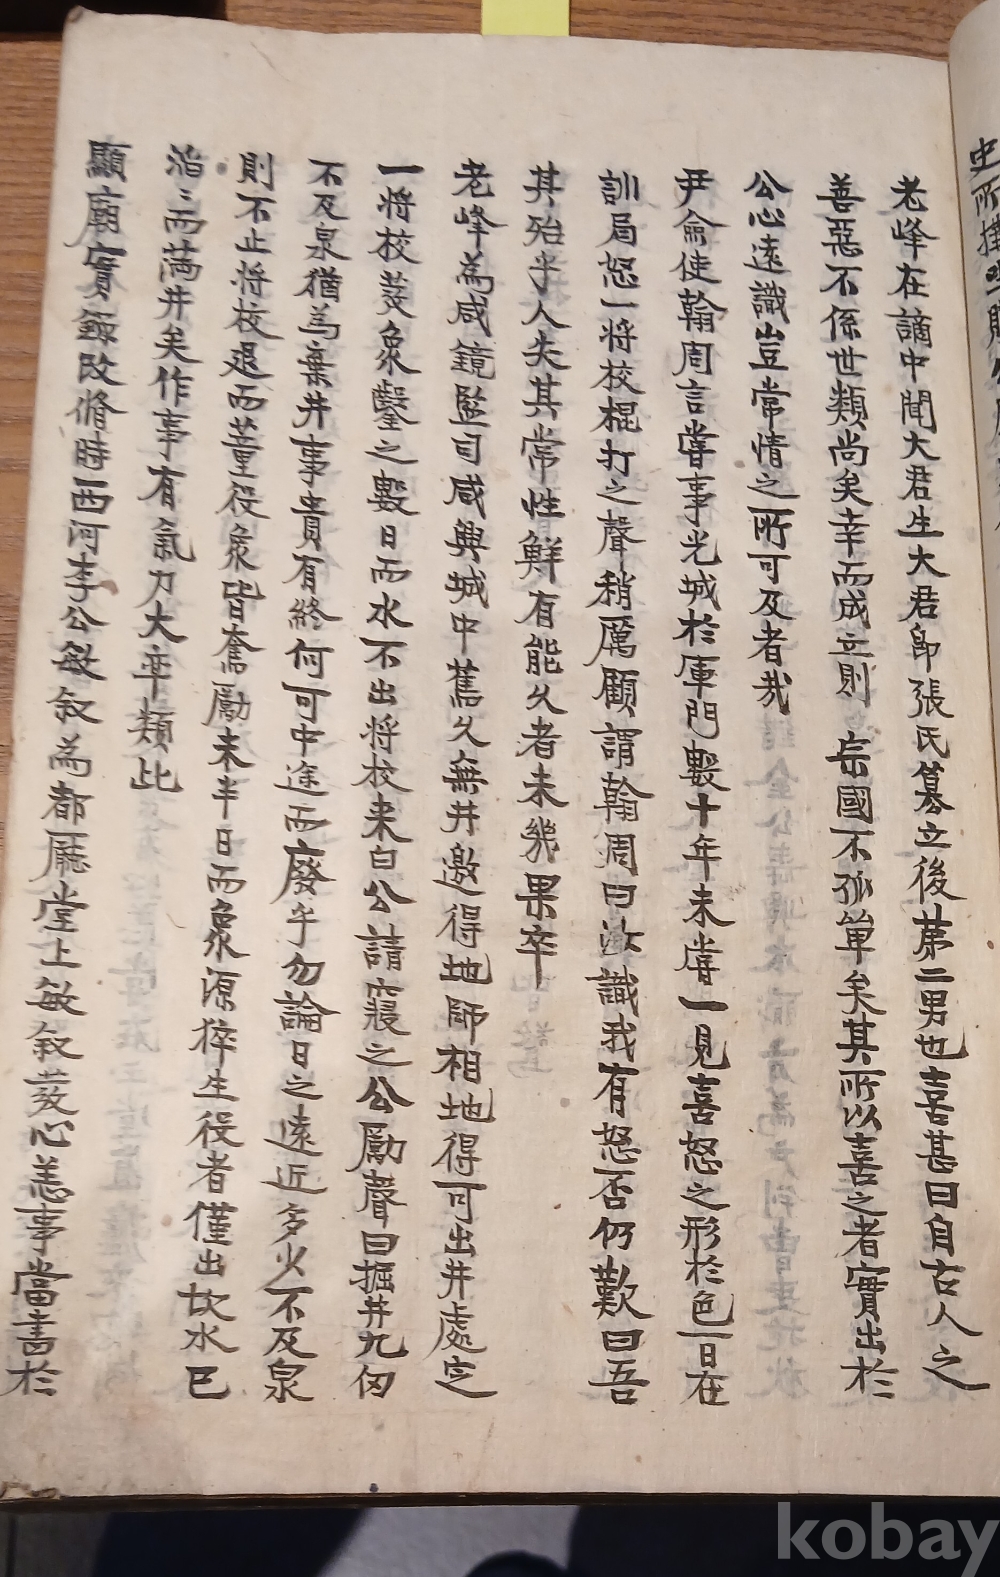 老峰在謫中聞大君生大君卽張氏墓立後第二男也喜甚曰自古人之
善惡不係世類尚矣幸而成立則 宗國不孤單矣其所以喜之者實出於
公心遠識豈常情之所可及者哉
尹僉使翰周言嘗事光城於庫門數十年未嘗一見喜怒之形於色一日在
訓局怒一将校棍打之聲稍厲顧謂翰周曰汝識我有怒否仍歎曰吾
其殆乎人失其常性鮮有能久者未幾果卒
老峰為咸鏡監司咸興城中舊久無井邀得地師相地得可出井處定
一将校發衆鑿之數日而水不出将校来白公請寢之公勵聲曰掘井九仞
不及泉猶為棄井事貴有終何可中途而廢乎勿論日之遠近多少不及泉
則不止将校退而董役衆皆奮勵未半日而衆源猝生役者僅出坎水已
滔〻而滿井矣作事有氣力大率類此
顯廟實錄改脩時西河李公敏叙為都廳堂上敏叙發心恙事當書於
史所
kobay